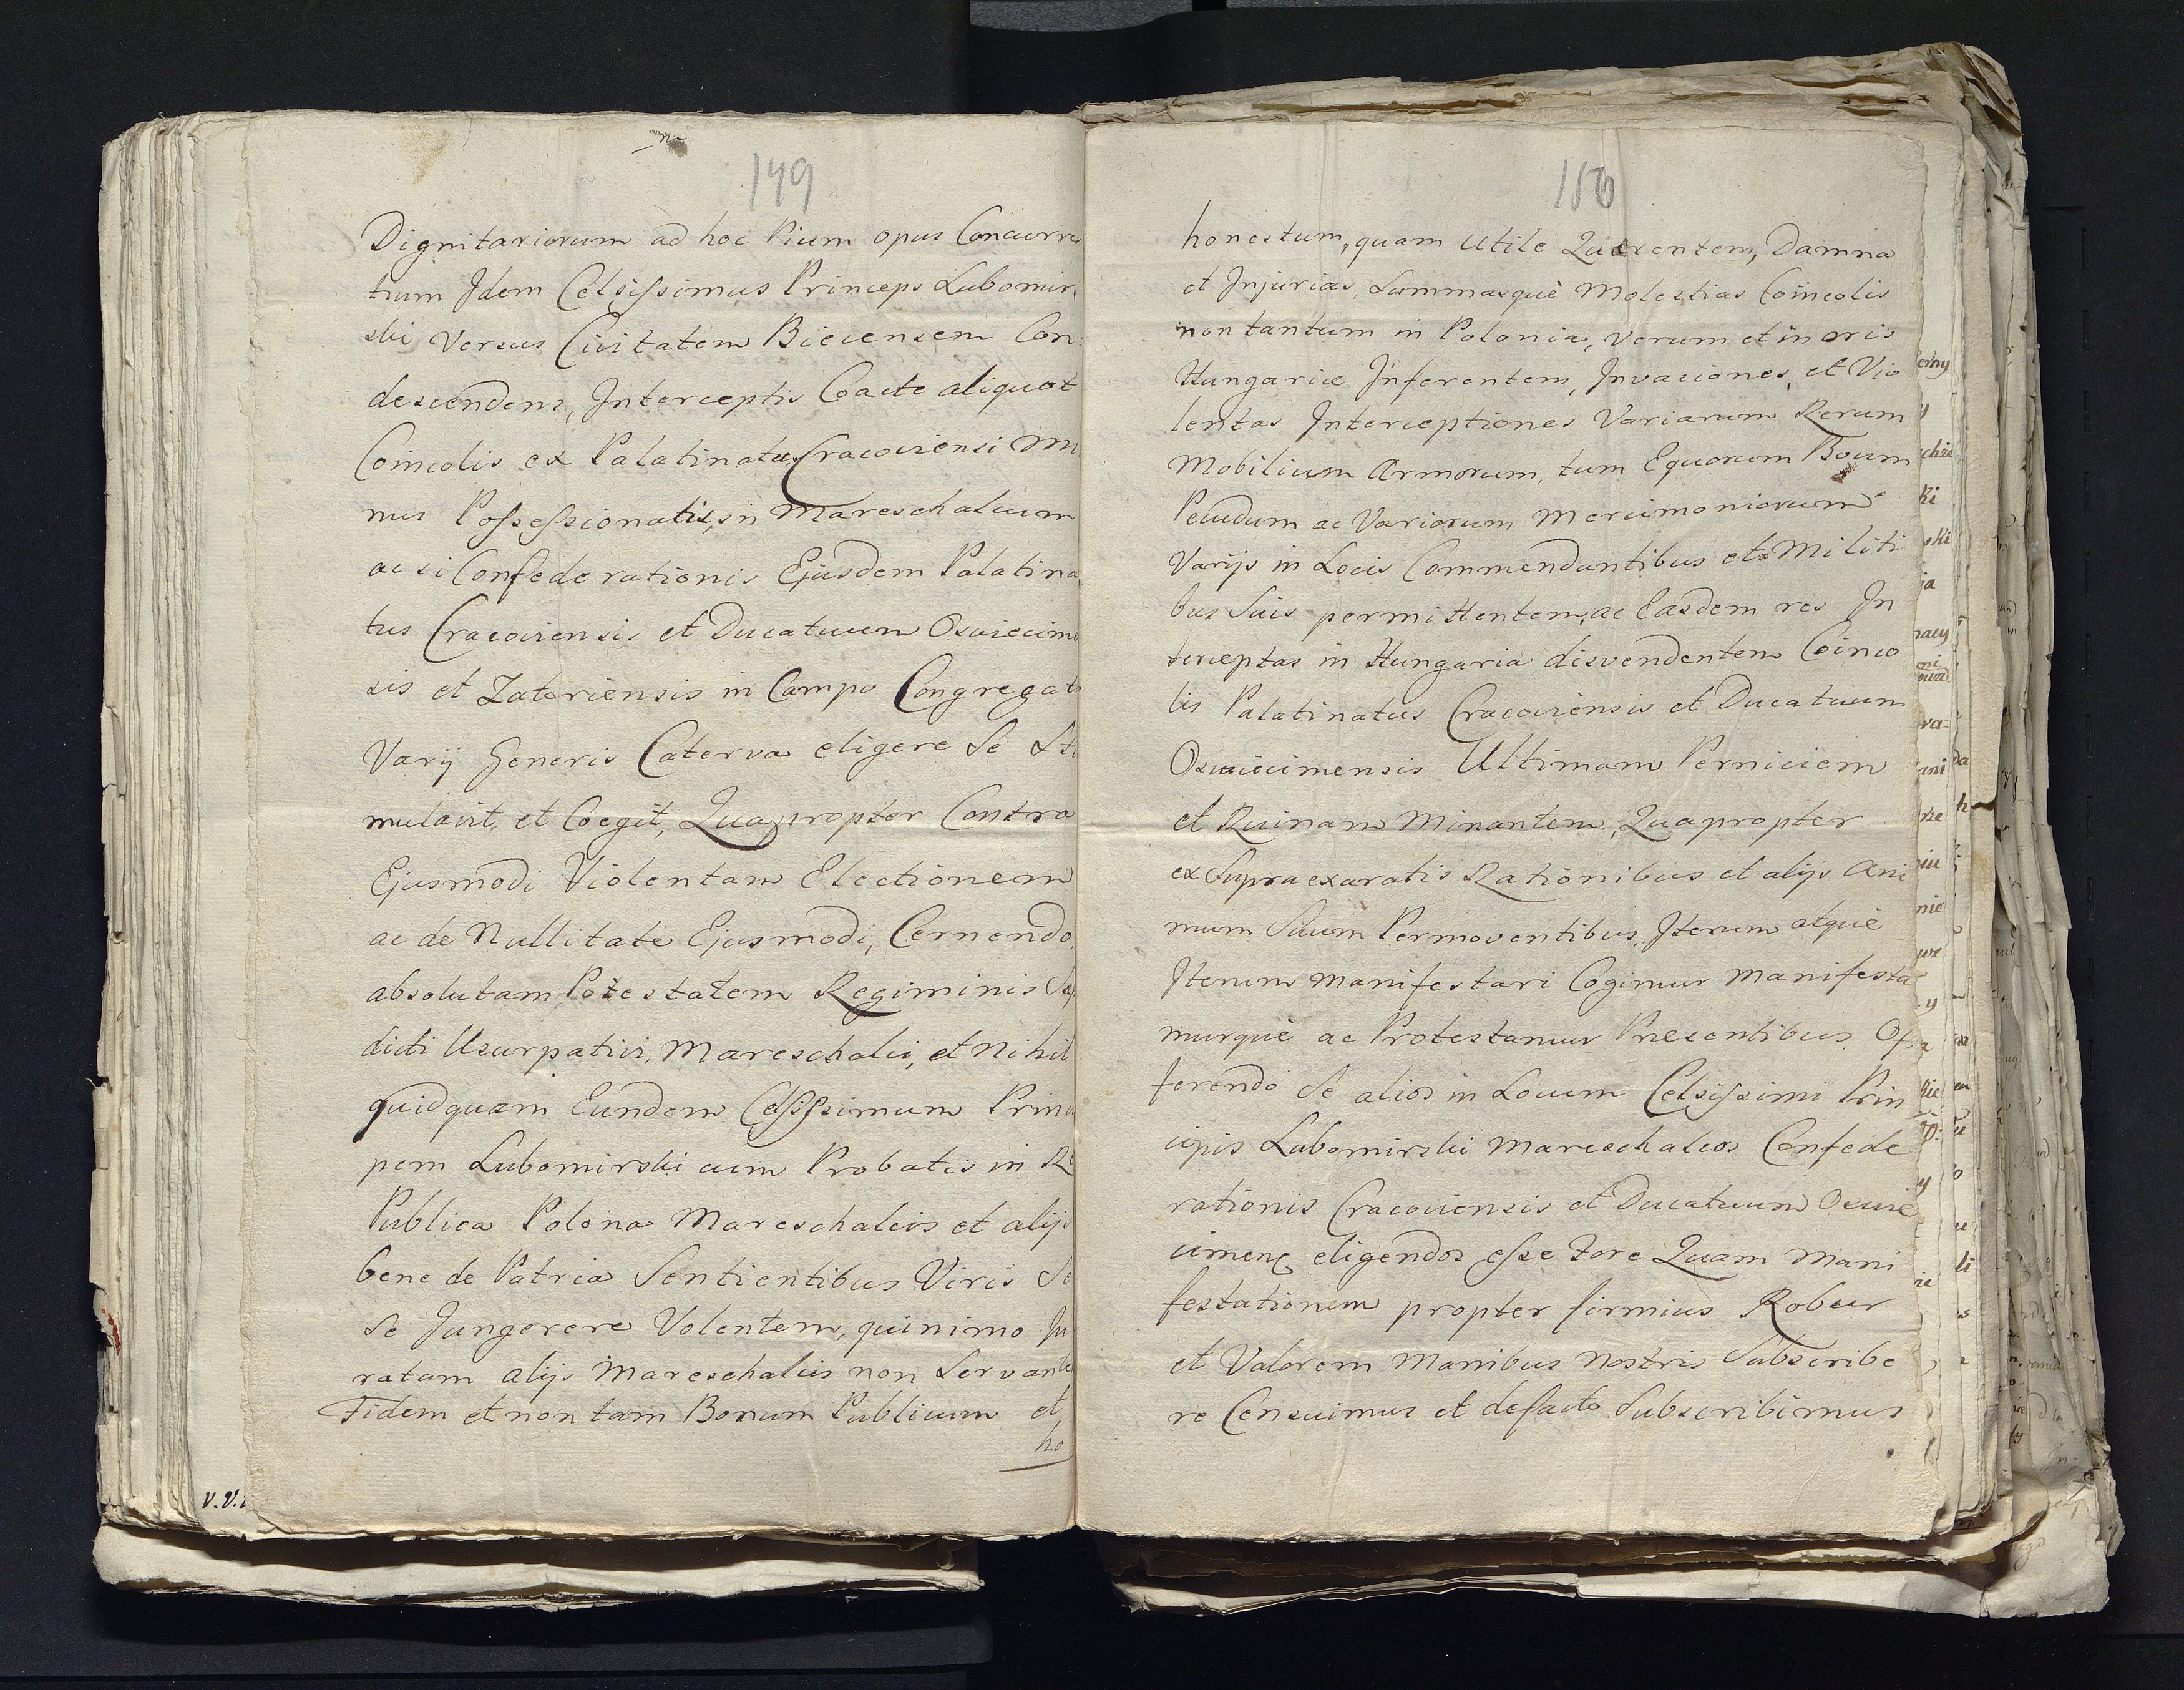 149
Dignitariorum ad hoc Pium opus Concurren
tium Idem Celsissimus Princeps Lubomir
ski Versus Civitatem Biecensem Con:
descendens, Interceptis Coacte aliquot
Coincolis ex Palatinatu Cracoviensi Mi
nus Possessionatis, in Mareschalcum
ac si Confederationis Ejusdem Palatina
tus Cracoviensis et Ducatuum Osviecimen
sis et Zatoriensis in Campo Congregata
Varij Generis Caterva eligere Se Sti
mulavit, et Coegit, Quapropter Contra
Ejusmodi Violentam Electionem
ac de Nullitate Ejusmodi, Cernendo
absolutam Potestatem Regiminis Sæ
dicti Usurpativi, Mareschalci, et Nihil
quidquam Eundem Celsissimum Princi
pem Lubomirski cum Probatis in Re
Publica Polona Mareschalcis et alijs
bene de Patria Sentientibus Viris Se
se Jungerere Volentem, quinimo Ju
ratam alijs Mareschalcis non Servante
Fidem et non tam Bonum Publicum et
ho
V.V.
150
honestum, quam Utile Quærentem, Damna
et Injurias, Summasquè Molestias Coincolis
non tantum in Polonia, verum et in oris
Hungariæ Inferentem, Invasiones, et Vio
lentas Interceptiones Variarum Rerum
Mobilium Armorum, tum Equorum Boum
Pecudum ac Variorum Mercimoniorum
Varijs in Locis Commendantibus et Militi
bus Suis permittentem, ac Easdem res In
terceptas in Hungaria disvendentem Coinco
lis Palatinatus Cracoviensis et Ducatuum
Osviecimensis Ultimam Perniciem
et Ruinam Minantem, Quapropter
ex Supra exaratis Rationibus et alijs Ani
mum Suum Permoventibus, Iterum atquè
Iterum Manifestari Cogimur Manifesta
murquè ac Protestamur Præsentibus Of
ferendo Se alios in Locum Celsissimi Prin
cipis Lubomirski Mareschalcos Confede
rationis Cracoviensis et Ducatuum Osvie
cimens eligendos esse Fore Quam Mani
festationem propter firmius Robur
et Valorem Manibus Nostris Subscribe
re Censuimus et defacto Subscribimus